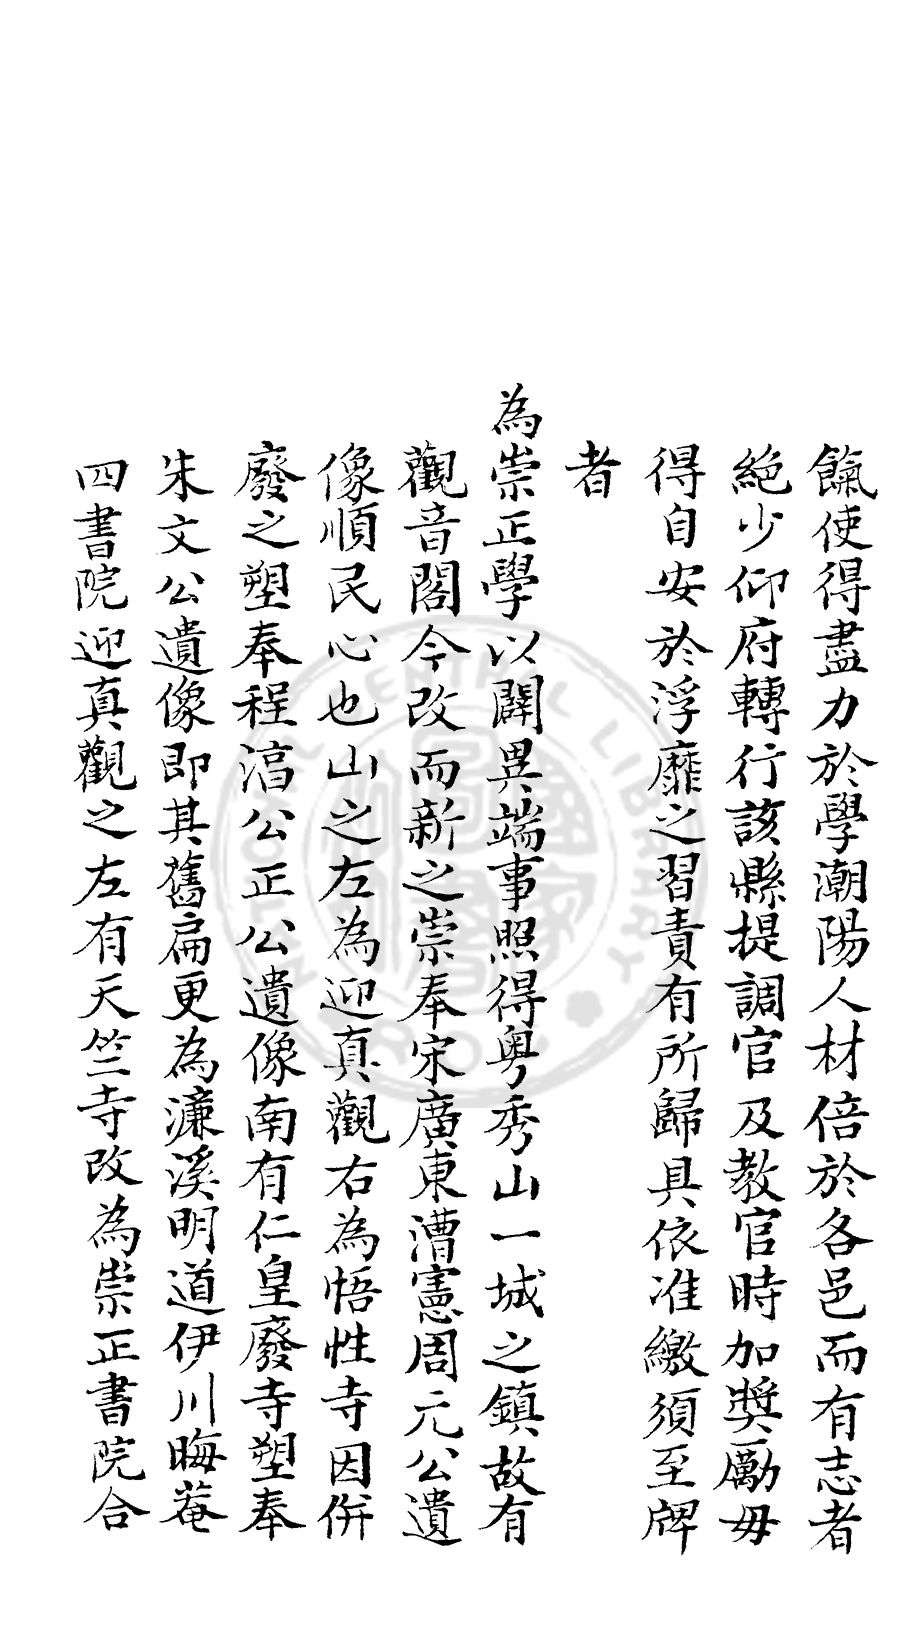 餼使得盡力於學潮陽人材倍於各邑而有志者
絕少仰府轉行該縣提調官及教官時加奬勵毋
得自安於浮靡之習責有所歸具依准繳須至牌
者
為崇正學以闢異端事照得粤秀山一城之鎮故有
觀音閣今改而新之崇奉宋廣東漕憲周元公遺
像順民心也山之左為迎真觀右為悟性寺因併
廢之塑奉程淳公正公遺像南有仁皇廢寺塑奉
朱文公遺像即其舊扁更為濂溪明道伊川晦菴
四書院迎真觀之左有天竺寺改為崇正書院合
NATIONAL CENTRAL LIBRARY